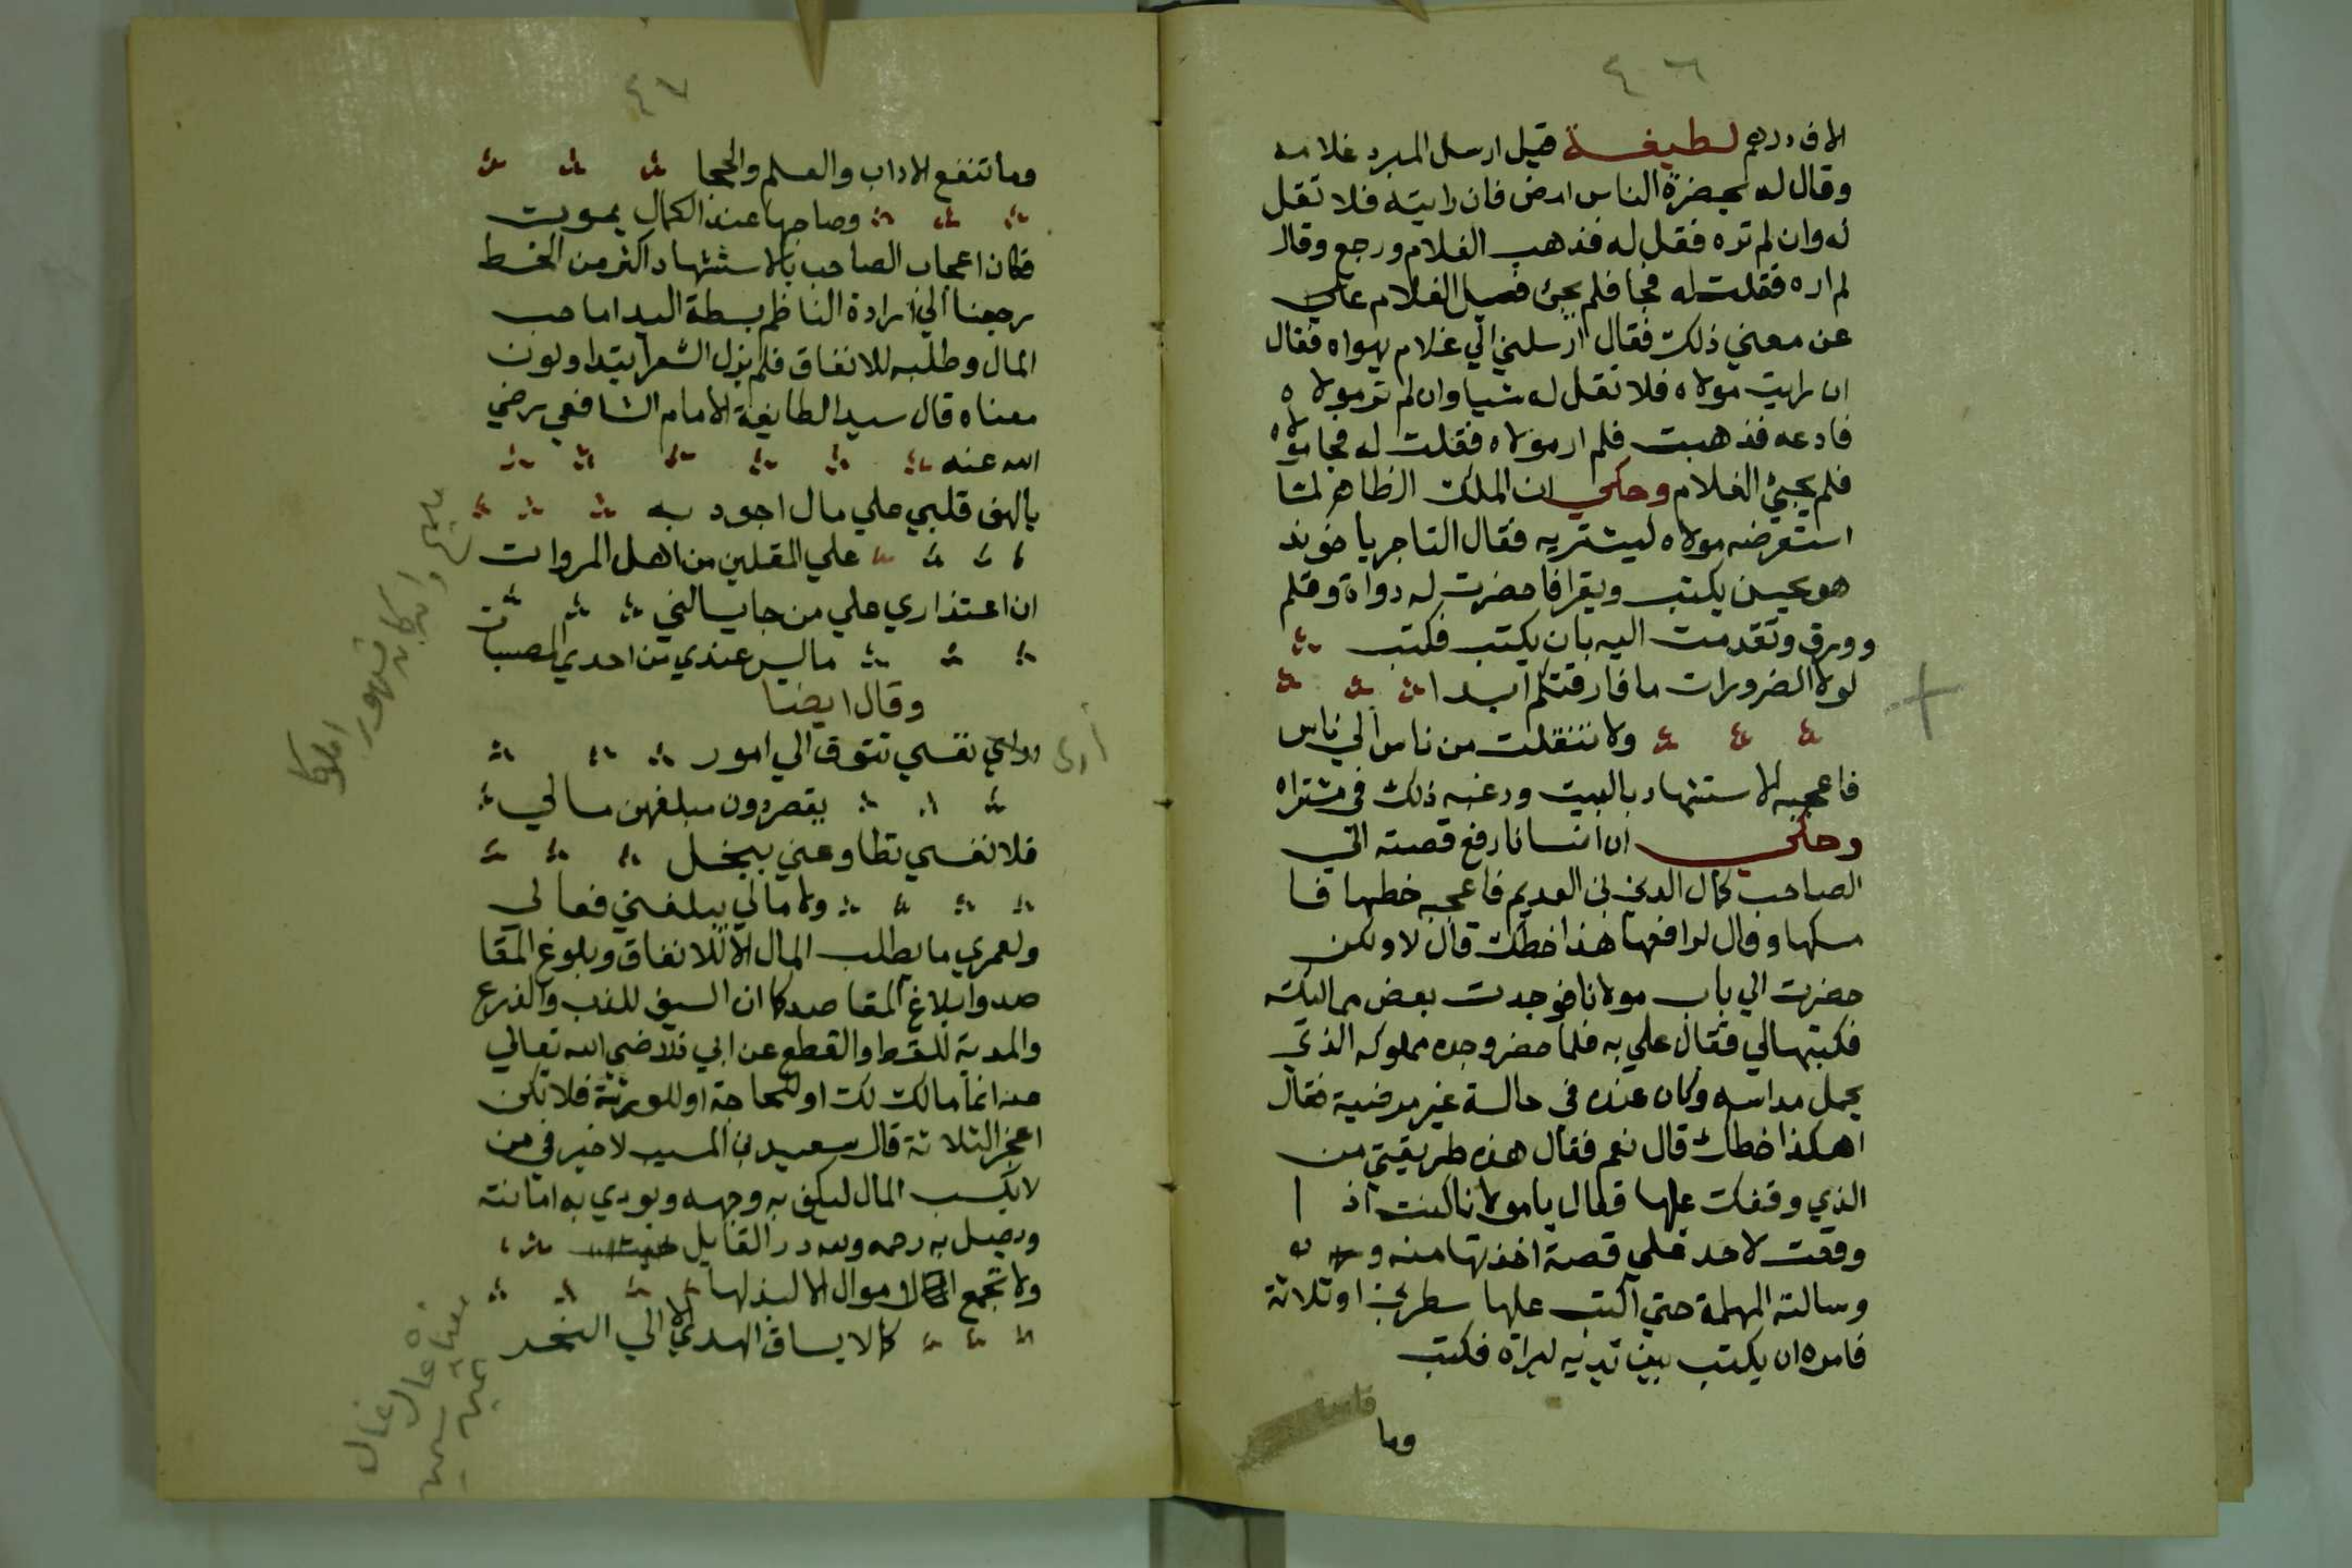 ٤٦
الاف درهم لطيفة قيل ارسل المبرد غلامه
وقال له بحضرة الناس امض فان رايته فلا تقل
له وان لم تره فقل له فذهب الغلام ورجع وقال
لم اره فقلت له فجا فلم يجئ فسيل الغلام
عن معني ذلك فقال ارسلني الي غلام يهواه فقال
ان رايت مولاه فلا تقل له شيا وان لم تر مولاه
فادعه فذهبت فلم ار مولاه فقلت له فجا مولاه
فلم يجيئ الغلام وحكي ان الملك الظاهر لما
استعرضه مولاه ليشتريه فقال التاجر يا خوند
هو يحسن يكتب ويقرا فاحضرت له دواة وقلم
وورق وتقدمت اليه بان يكتب فكتب
لولا الضرورات ما فارقتكم ابدا
ولا تنقلت من ناس الي ناس
فاعجبه الاستشهاد بالبيت ورغبه ذلك في مشتراه
وحكي ان انسانا رفع قصته الي
الصاحب كمال الدين بن العديم فاعجبه خطها فا
مسكها وقال لرافعها هذا خطك قال لا ولكن
حضرت الي باب مولانا فوجدت بعض مماليكه
فكتبها لي فقال علي به فلما حضر وجده مملوكه الذي
يحمل مداسه وكان عنده في حالة غير مرضية فقال
اهكذا خطك قال نعم فقال هذه طريقتي من
الذي وقفك عليها فقال يا مولانا كنت اذ ا
وقعت لاحد علي قصة اخذتها منه
وسالته المهلة حتي اكتب عليها سطرين او ثلاثة
فامره ان يكتب بين يديه ليراه فكتب
وما
٤٧
وما تنفع الاداب والعلم والحجا
وصاحبها عند الكمال يموت
فكان اعجاب الصاحب بالاستشهاد اكثر من الخط
رجعنا الي ارادة الناظم بسطة اليد اما حب
المال وطلبه للانفاق فلم يزل الشعرا يتداولون
معناه قال سيد الطايفة الامام الشافعي رضي
الله عنه
يا لهف قلبي علي مال اجود به
علي المقلين من اهل المروات
ان اعتذاري علي من جا يسالني
ما ليس عندي من احدي المصيبات
وقال ايضا
وراي نفسي تتوق الي امور
أرى
يقصر دون مبلغهن مالي
فلا نفسي تطاوعني ببخل
ولا مالي يبلغني فعالي
ولعمري ما يطلب المال الا للانفاق وبلوغ المقا
صد وابلاغ المقاصد كما ان السيف للذب والذرع
والمدية للقط والقطع عن ابي ذر رضي الله تعالي
عنه انما مالك لك او للحاجة او للورثة فلا تكن
اعجز الثلاثة قال سعيد بن المسيب لا خير في من
لا يكسب المال ليكف به وجهه ويودي به امانته
ويصل به رحمه ولله در القايل
ولا تجمع الاموال الا لبذلها
كما لا يساق الهدي الا الي النحر